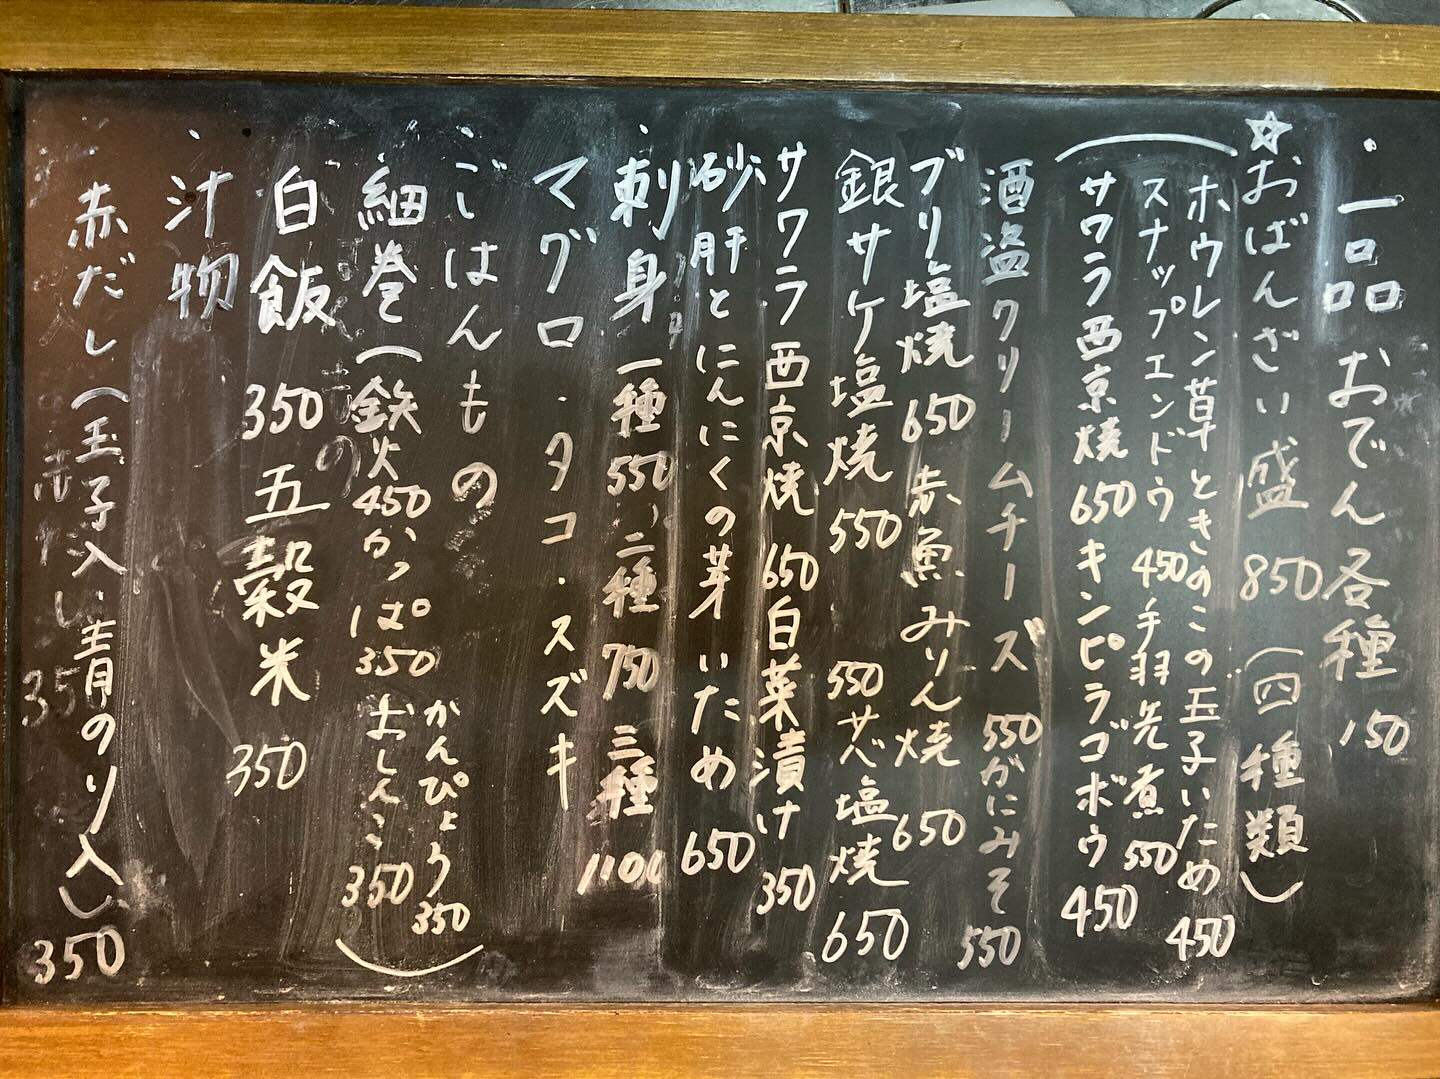 ・一品 おでん各種 150
☆おばんざい盛 850 (四種類)
ホウレン草ときのこの玉子いため 450
スナップエンドウ 450 手羽先煮 550
サワラ西京焼 650 キンピラゴボウ 450
酒盗クリームチーズ 550 かにみそ 550
ブリ塩焼 650 赤魚みりん焼 650
銀サケ塩焼 550 サバ塩焼 650
サワラ西京焼 650 白菜漬け 350
砂肝とにんにくの芽いため 650
・刺身 一種 550、二種 750 三種 1100
マグロ・タコ・スズキ
・ごはんもの
細巻(鉄火 450 かっぱ 350 おしんこ 350
かんぴょう 350)
白飯 350 五穀米 350
・汁物
赤だし(玉子入・青のり入) 350